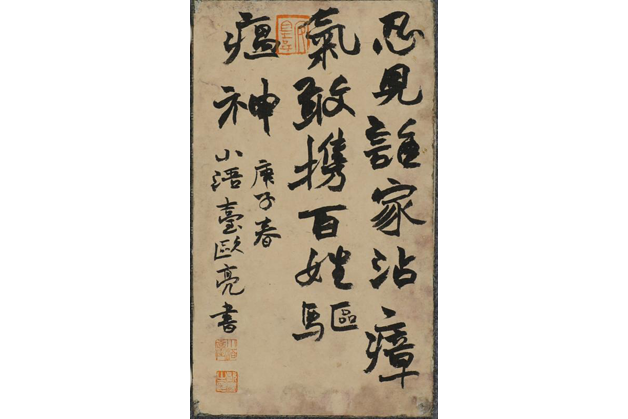 忍見誰家沾瘴
氣敢攜百姓驅
瘟神
庚子春
小浯臺歐亮書